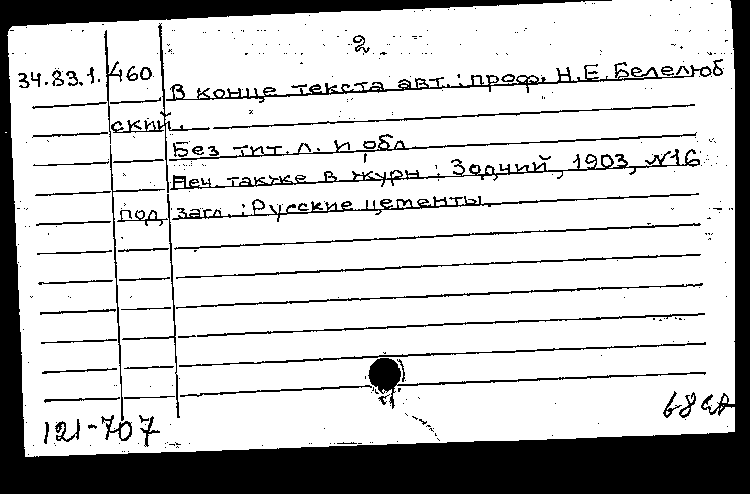 2
34.33.1.460
В конце текста авт.: проф. Н.Е. Белелюб
ский.
Без тит. л. и обл
Печ. также в журн: Зодчий, 1903, №16
под загл.: Русские цементы.
121-707